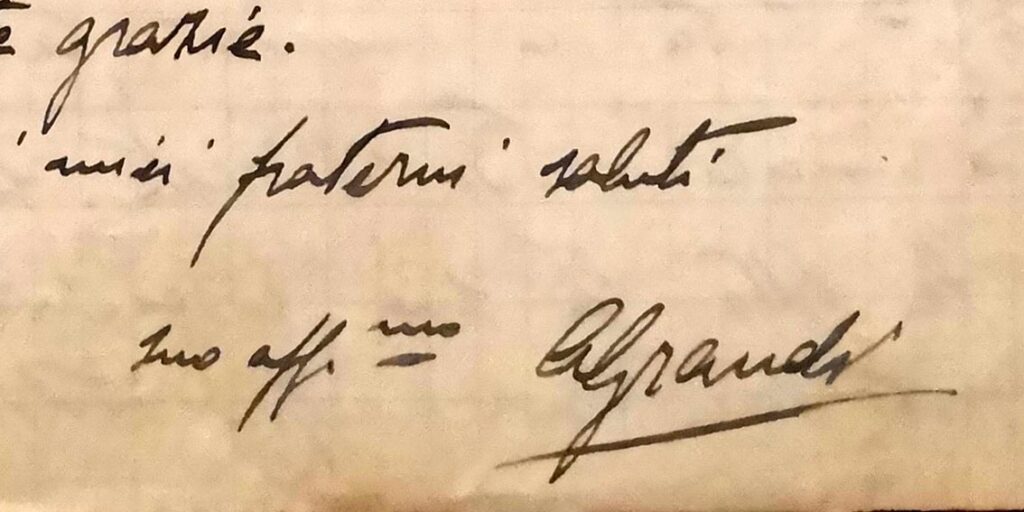 e grazie.
i amici fraterni saluti
suo aff.mo AGrandi